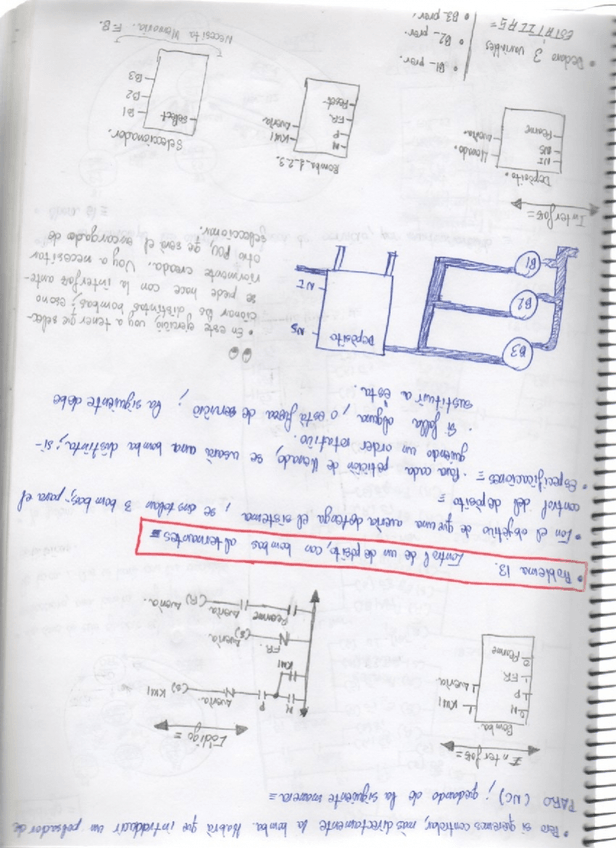 • Pero si queremos controlar, más directamente la bomba Habrá que introducir un pulsador de
PARO (NC) ; quedando de la siguiente manera =
Interfase =
Código =
Bomba
M
P
FR
Rearme
KM1
Avería
M
P
Avería.
(S) KM1
KM1
FR
(S)
Avería.
Rearme
(R)
Avería.
• Problema 13. Control de un depósito, con bombas alternantes =
• Con el objetivo de que una avería detenga el sistema , se instalan 3 bombas, para el
control del depósito =
• Especificaciones = Para cada petición de llenado, se usará una bomba distinta, si-
guiendo un orden rotativo.
• Si falla alguna , o está fuera de servicio ; la siguiente debe
sustituir a ésta.
B3
B2
B1
Depósito
NS
NI
• En este ejercicio voy a tener que selec-
cionar las distintas bombas; como
se puede hacer con la interfas ante-
riormente creada. Voy a necesitar
otro FUP, que será el encargado de
seleccionar.
Interfase =
Depósito.
NI
NS
Rearme
Llenado.
Avería.
Bomba_1_2_3.
M
P
FR
Reset
KM1
Avería
Seleccionador.
Select
B1
B2
B3
Necesita Memoria. F.B.
• Declaro 3 variables
ESTÁTICAS =
• B1_prev.
• B2_prev.
• B3_prev.